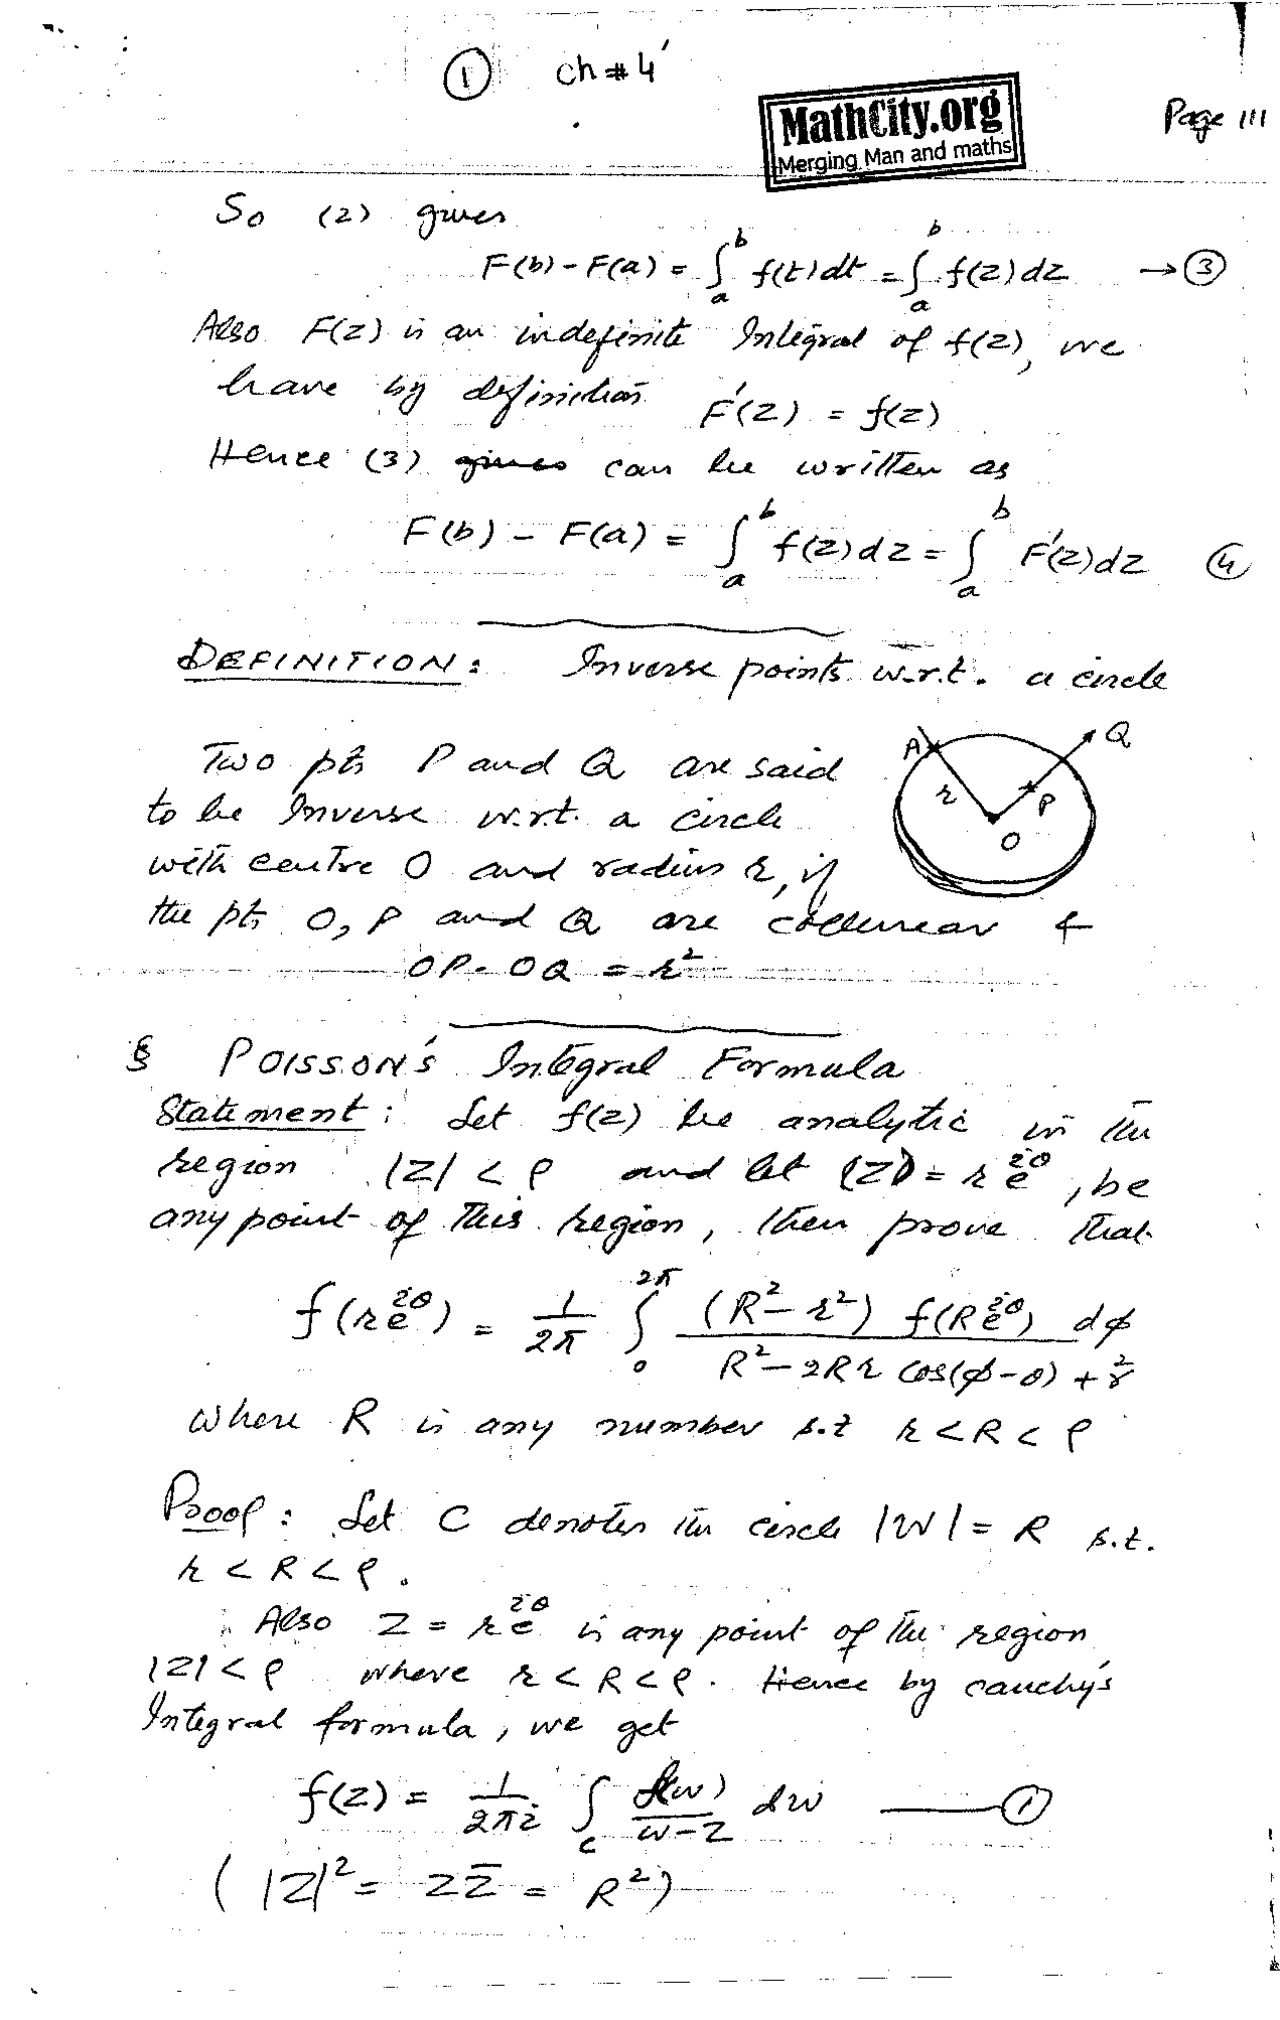 ① Ch # 4
MathCity.org
Merging Man and maths
Page 111
So (2) gives
F(b) - F(a) = ∫_a^b f(t) dt = ∫_a^b f(z) dz → ③
Also F(z) is an indefinite Integral of f(z), we
have by definition F'(z) = f(z)
Hence (3) gives can be written as
F(b) - F(a) = ∫_a^b f(z) dz = ∫_a^b F'(z) dz ④
DEFINITION: Inverse points w.r.t. a circle
A Q
r P
O
Two pts P and Q are said
to be Inverse w.r.t. a circle
with centre O and radius r, if
the pts O, P and Q are collinear &
OP. OQ = r²
§ POISSON'S Integral Formula
Statement: Let f(z) be analytic in the
region |z| < ρ and let (z) = r e^{iθ}, be
any point of this region, then prove that
f(r e^{iθ}) = 1/2π ∫_0^{2π} (R² - r²) f(R e^{iθ}) dφ / R² - 2Rr cos(φ-θ) + r²
where R is any number s.t r < R < ρ
Proof: Let C denotes the circle |W| = R s.t.
r < R < ρ.
Also z = r e^{iθ} is any point of the region
|z| < ρ where r < R < ρ. Hence by cauchy's
Integral formula, we get
f(z) = 1/2πi ∫_c f(w)/w-z dw —— ①
( |z|² = z z̄ = R² )